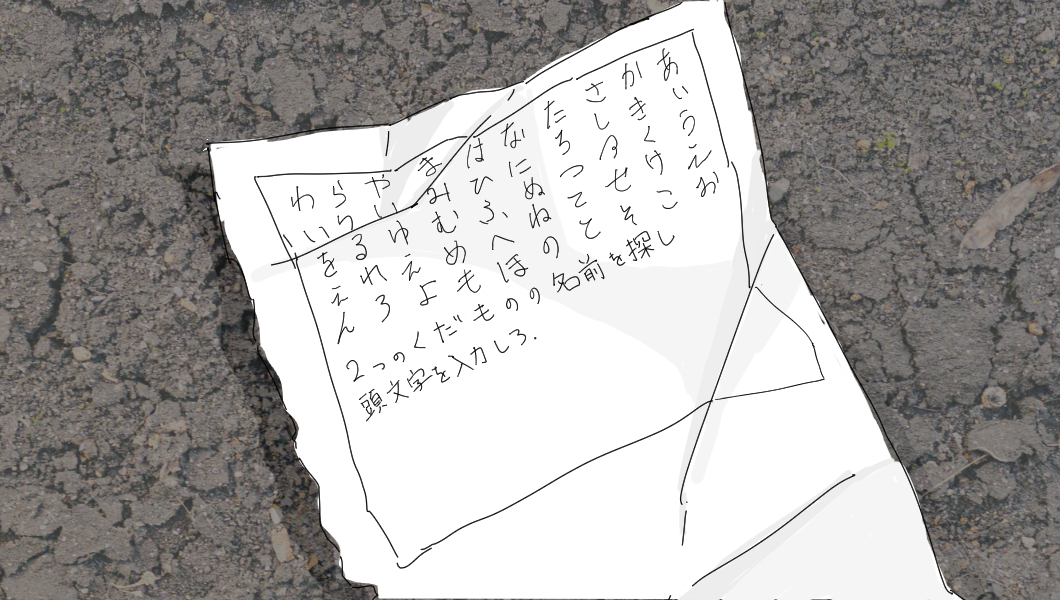 あいうえお
かきくけこ
さしタせそ
たちつてと
なにぬねの
はひふへほ
まみむめも
やいゆえよ
らりるれろ
わいをえん
2つのくだものの名前を探し
頭文字を入力しろ.